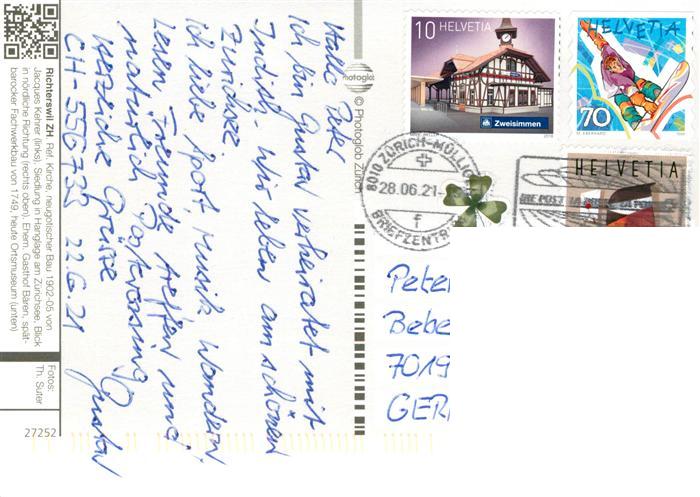 Hallo Peter
Ich bin Gustav verheiratet mit
Judith. Wir leben am schönen
Zürichsee
ich liebe Sport Musik Wandern
Lesen Freunde treffen und
natürlich Postcrossing
Herzliche Grüsse Gustav
CH-556733 22.6.21
Richterswil ZH Ref. Kirche, neugotischer Bau 1902-05 von
Jacques Kehrer (links), Siedlung in Hanglage am Zürichsee, Blick
in nördliche Richtung (rechts oben), Ehem. Gasthof Bären, spät-
barocker Fachwerkbau von 1749, heute Ortsmuseum (unten)
Fotos:
Th. Suter
27252
Photoglob
© Photoglob Zürich
10 HELVETIA
Zweisimmen
HELVETIA
70
HELVETIA
8010 ZÜRICH-MÜLLIG
28.06.21-
f
BRIEFZENTR
DIE POST LA POSTE LA POST
Peter
Bebe
7019
GER